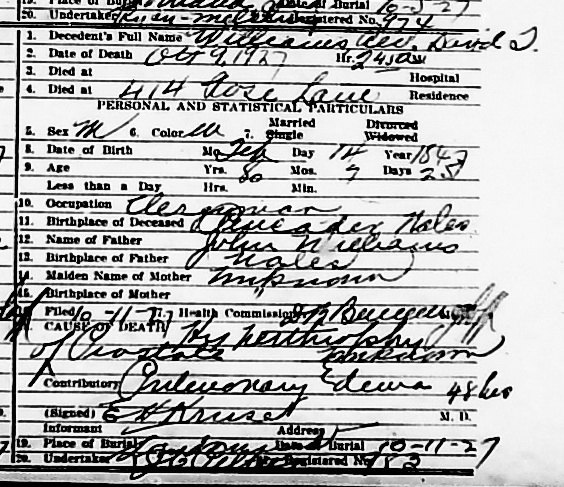 19. Place of Burial Date of Burial 10-5-27
20. Undertaker Registered No. 974
1. Decedent's Full Name Williams Rev. David J.
2. Date of Death Oct 9, 1927 Hr. 245 AM
3. Died at Hospital
4. Died at 414 Rose Lane Residence
PERSONAL AND STATISTICAL PARTICULARS
5. Sex M 6. Color W 7. Married Single Divorced Widowed
8. Date of Birth Mo. Feb Day 14 Year 1847
9. Age Yrs. 80 Mos. 7 Days 25
Less than a Day Hrs. Min.
10. Occupation Clergyman
11. Birthplace of Deceased Wales
12. Name of Father John Williams
13. Birthplace of Father Wales
14. Maiden Name of Mother Unknown
15. Birthplace of Mother
Filed 10-11-27 Health Commissioner
17. CAUSE OF DEATH Hypertrophy
of Prostate Unknown
Contributory Pulmonary Edema 48 hrs
(Signed) E H Kruse M. D.
Informant Address
19. Place of Burial Date of Burial 10-11-27
20. Undertaker Registered No. 982